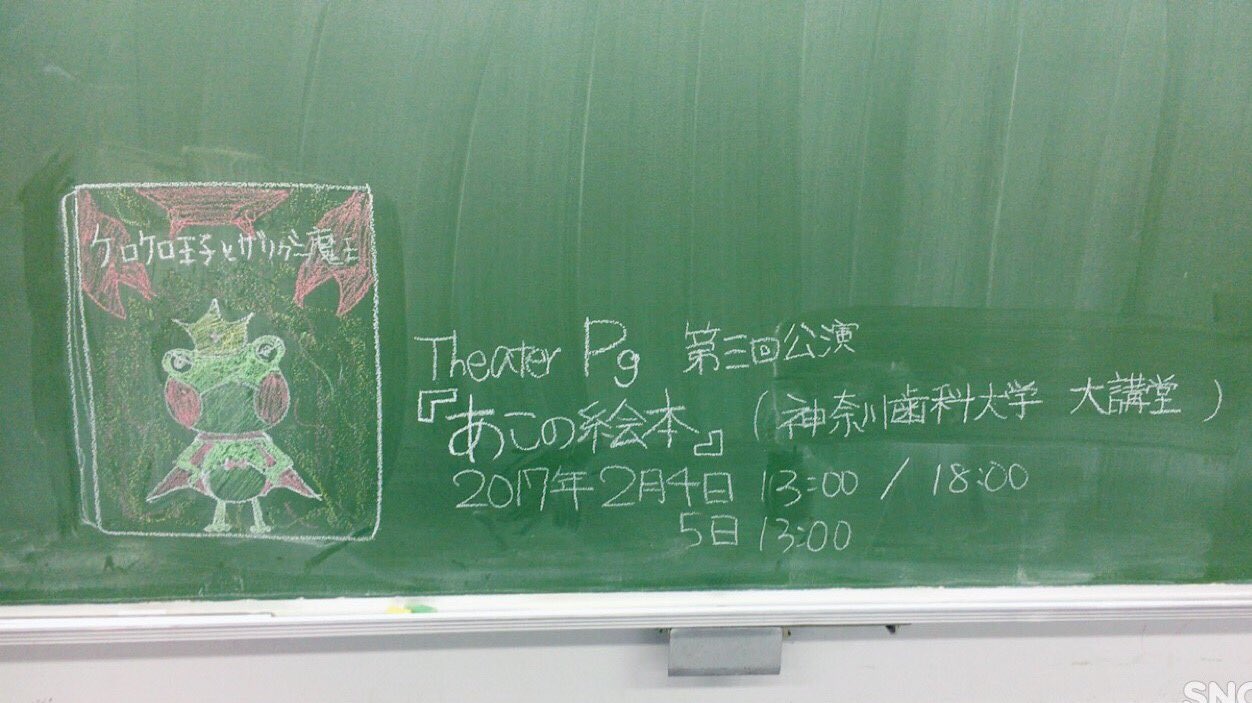 ケロケロ王子とザリガニ魔王
Theater Pg 第三回公演
『あこの絵本』 (神奈川歯科大学 大講堂)
2017年2月4日 13:00 / 18:00
5日 13:00
SNO